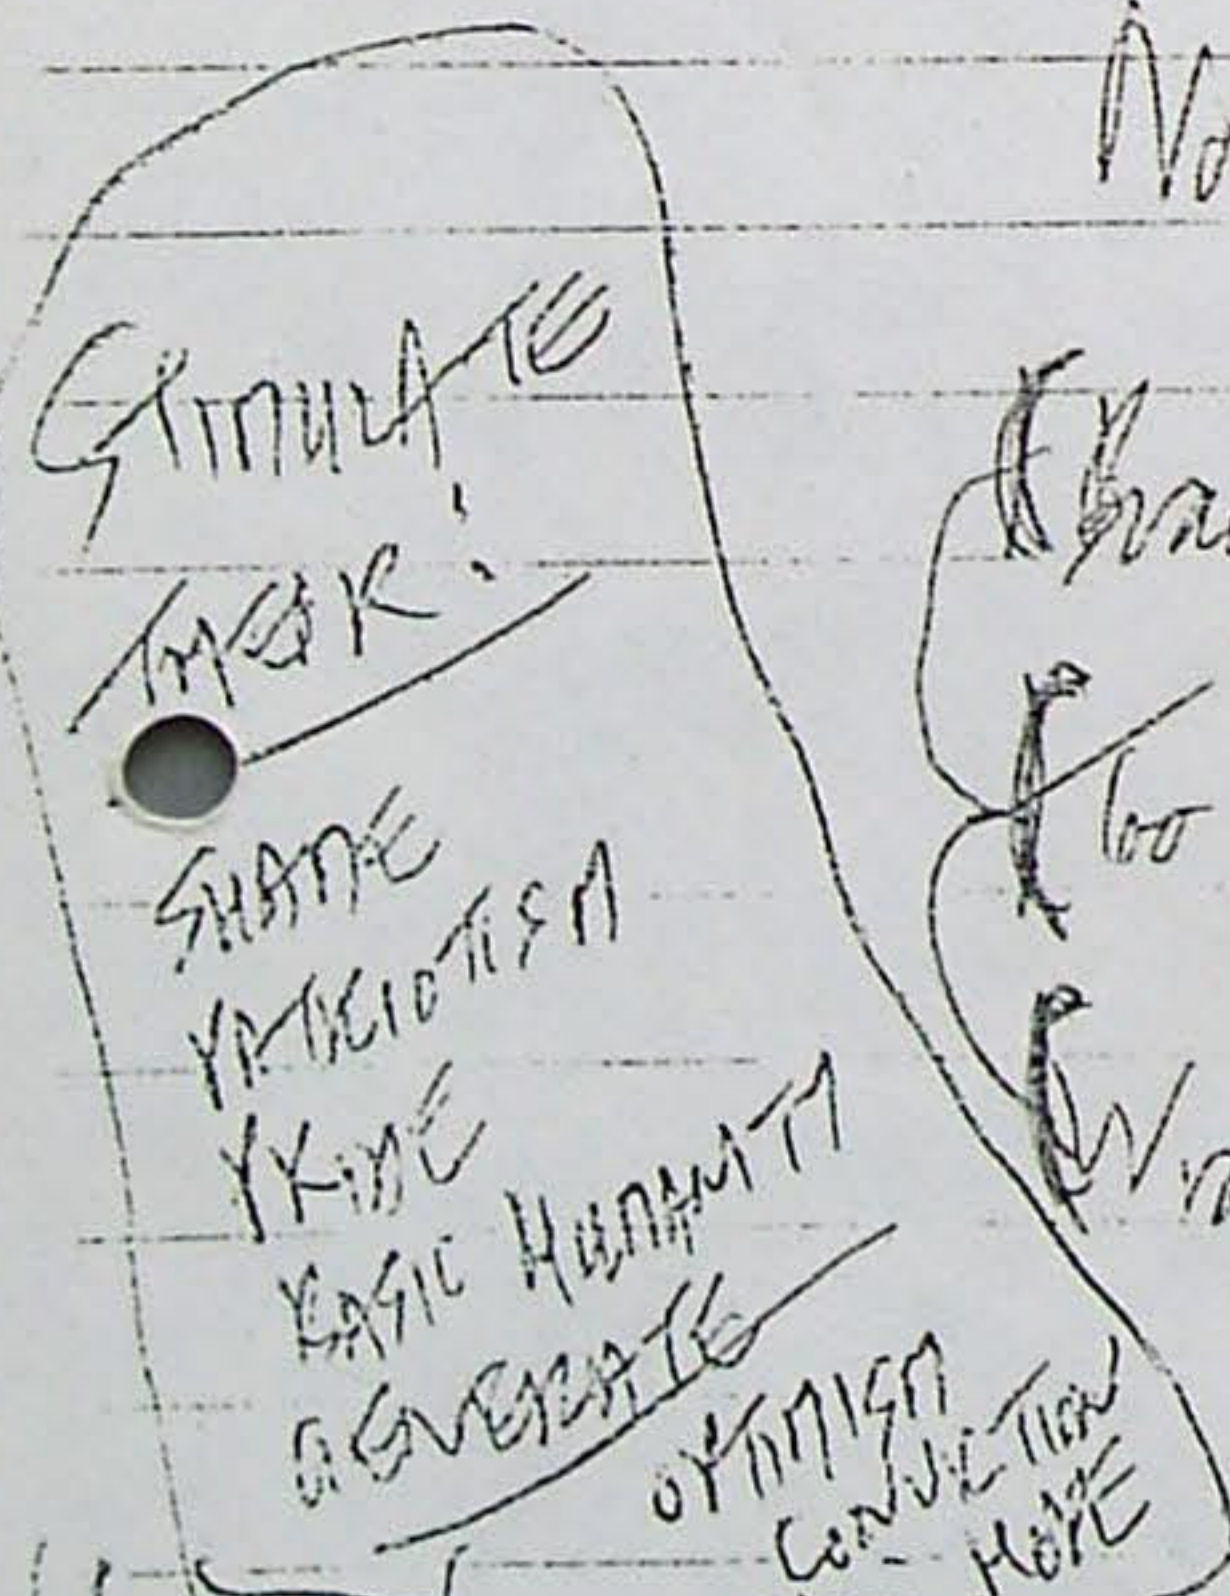 No
STIMULATE
THEIR!
SHAME
PATRIOTISM
PRIDE
BASIC HUMANITY
GENERATE
OPTIMISM
CONVICTION
HOPE
Too